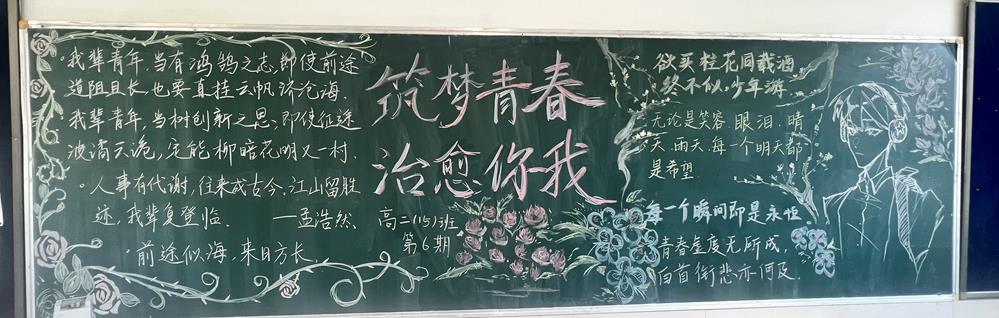 ·我辈青年,当有鸿鹄之志,即使前途
道阻且长,也要直挂云帆济沧海.
我辈青年,当树创新之思,即使征途
波谲云诡,定能柳暗花明又一村.
·人事有代谢,往来成古今,江山留胜
迹,我辈复登临. ——孟浩然
·前途似海,来日方长.
筑梦青春
治愈你我
高二(15)班
第6期
欲买桂花同载酒,
终不似,少年游.
无论是笑容、眼泪、晴
天、雨天,每一个明天都
是希望
每一个瞬间即是永恒.
青春虚度无所成,
白首衔悲亦何及.